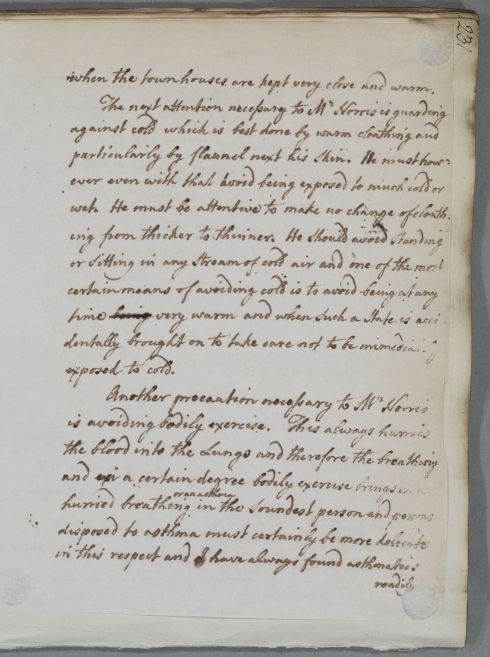 231
when the town houses are kept very close and warm.
The next attention necessary to Mr Norris is guarding
against cold which is best done by warm cloathing and
particularly by flannel next his Skin. He must how=
ever even with that avoid being exposed to much cold or
wet. He must be attentive to make no change of cloath=
ing from thicker to thinner. He should avoid Standing
or Sitting in any Stream of cold air and one of the most
certain means of avoiding cold is to avoid being at any
time being very warm and when Such a State is acci
dentally brought on to take care not to be immediately
exposed to cold.
Another precaution necessary to Mr Norris
is avoiding bodily exercise. This always hurries
the blood into the Lungs and therefore the breathing
and in a certain degree bodily exercise brings on a
hurried breathing in the Soundest person and persons
disposed to asthma must certainly be more delicate
in this respect and I have always found asthmatics
readily